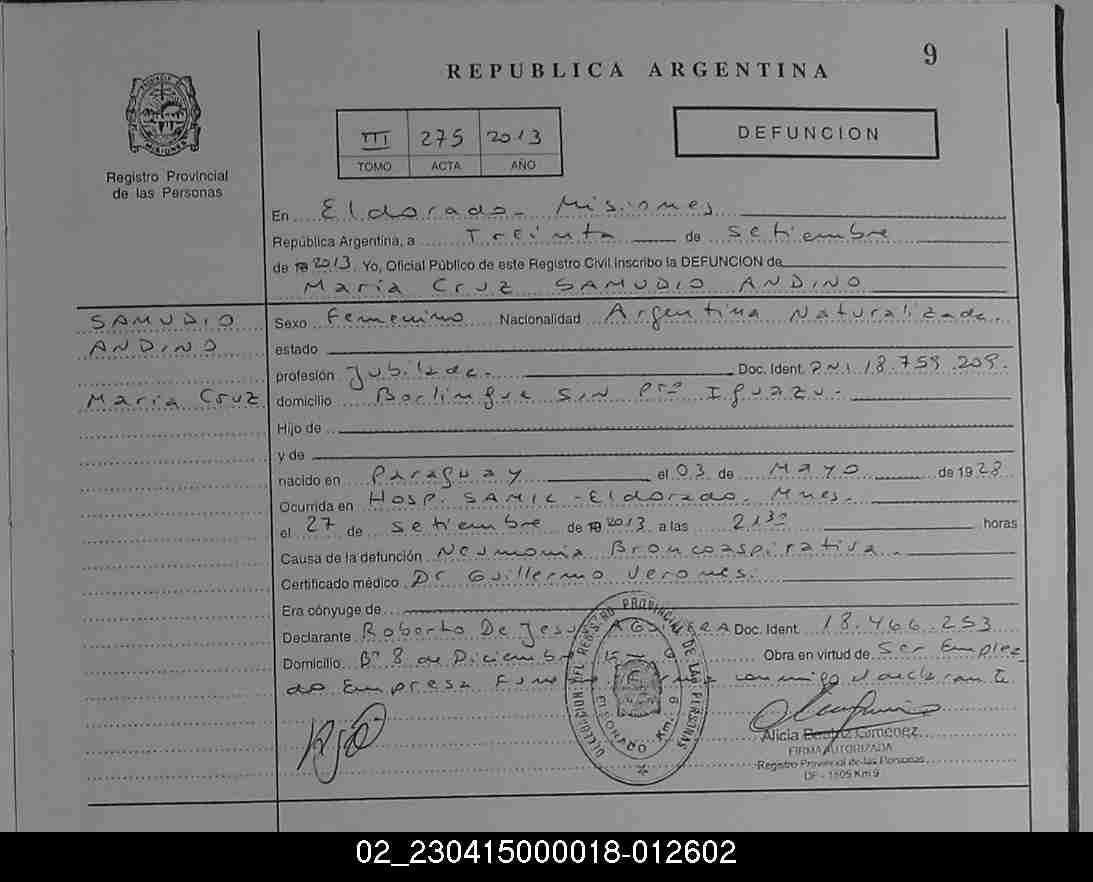 9
REPUBLICA ARGENTINA
PROVINCIA DE
MISIONES
Registro Provincial
de las Personas
III 275 2013
TOMO ACTA AÑO
DEFUNCION
En Eldorado - Misiones
República Argentina, a Treinta de Setiembre
de 2013. Yo, Oficial Público de este Registro Civil inscribo la DEFUNCION de
Maria Cruz SAMUDIO ANDINO
SAMUDIO
ANDINO
Maria Cruz
Sexo Femenino Nacionalidad Argentina Naturalizada.
estado
profesión Jubilada. Doc. Ident. DNI 18.759.209.
domicilio S/N Pto Iguazu.
Hijo de
y de
nacido en Paraguay el 03 de Mayo de 1928
Ocurrida en Hosp. SAMIC - Eldorado. Mnes.
el 27 de Setiembre de 2013 a las 21 30 horas
Causa de la defunción Neumonia Broncoaspirativa.
Certificado médico Dr Guillermo Verones.
Era cónyuge de
Declarante Roberto De Jesus AGUILERA Doc. Ident. 18.466.253
Domicilio Bº 8 de Diciembre Obra en virtud de Ser Emplea
do Empresa conmigo el declarante.
DIRECCION DEL REGISTRO PROVINCIAL DE LAS PERSONAS
ELDORADO Km. 9
Alicia Beatriz Gimenez
FIRMA AUTORIZADA
Registro Provincial de las Personas
Km 9
02_230415000018-012602